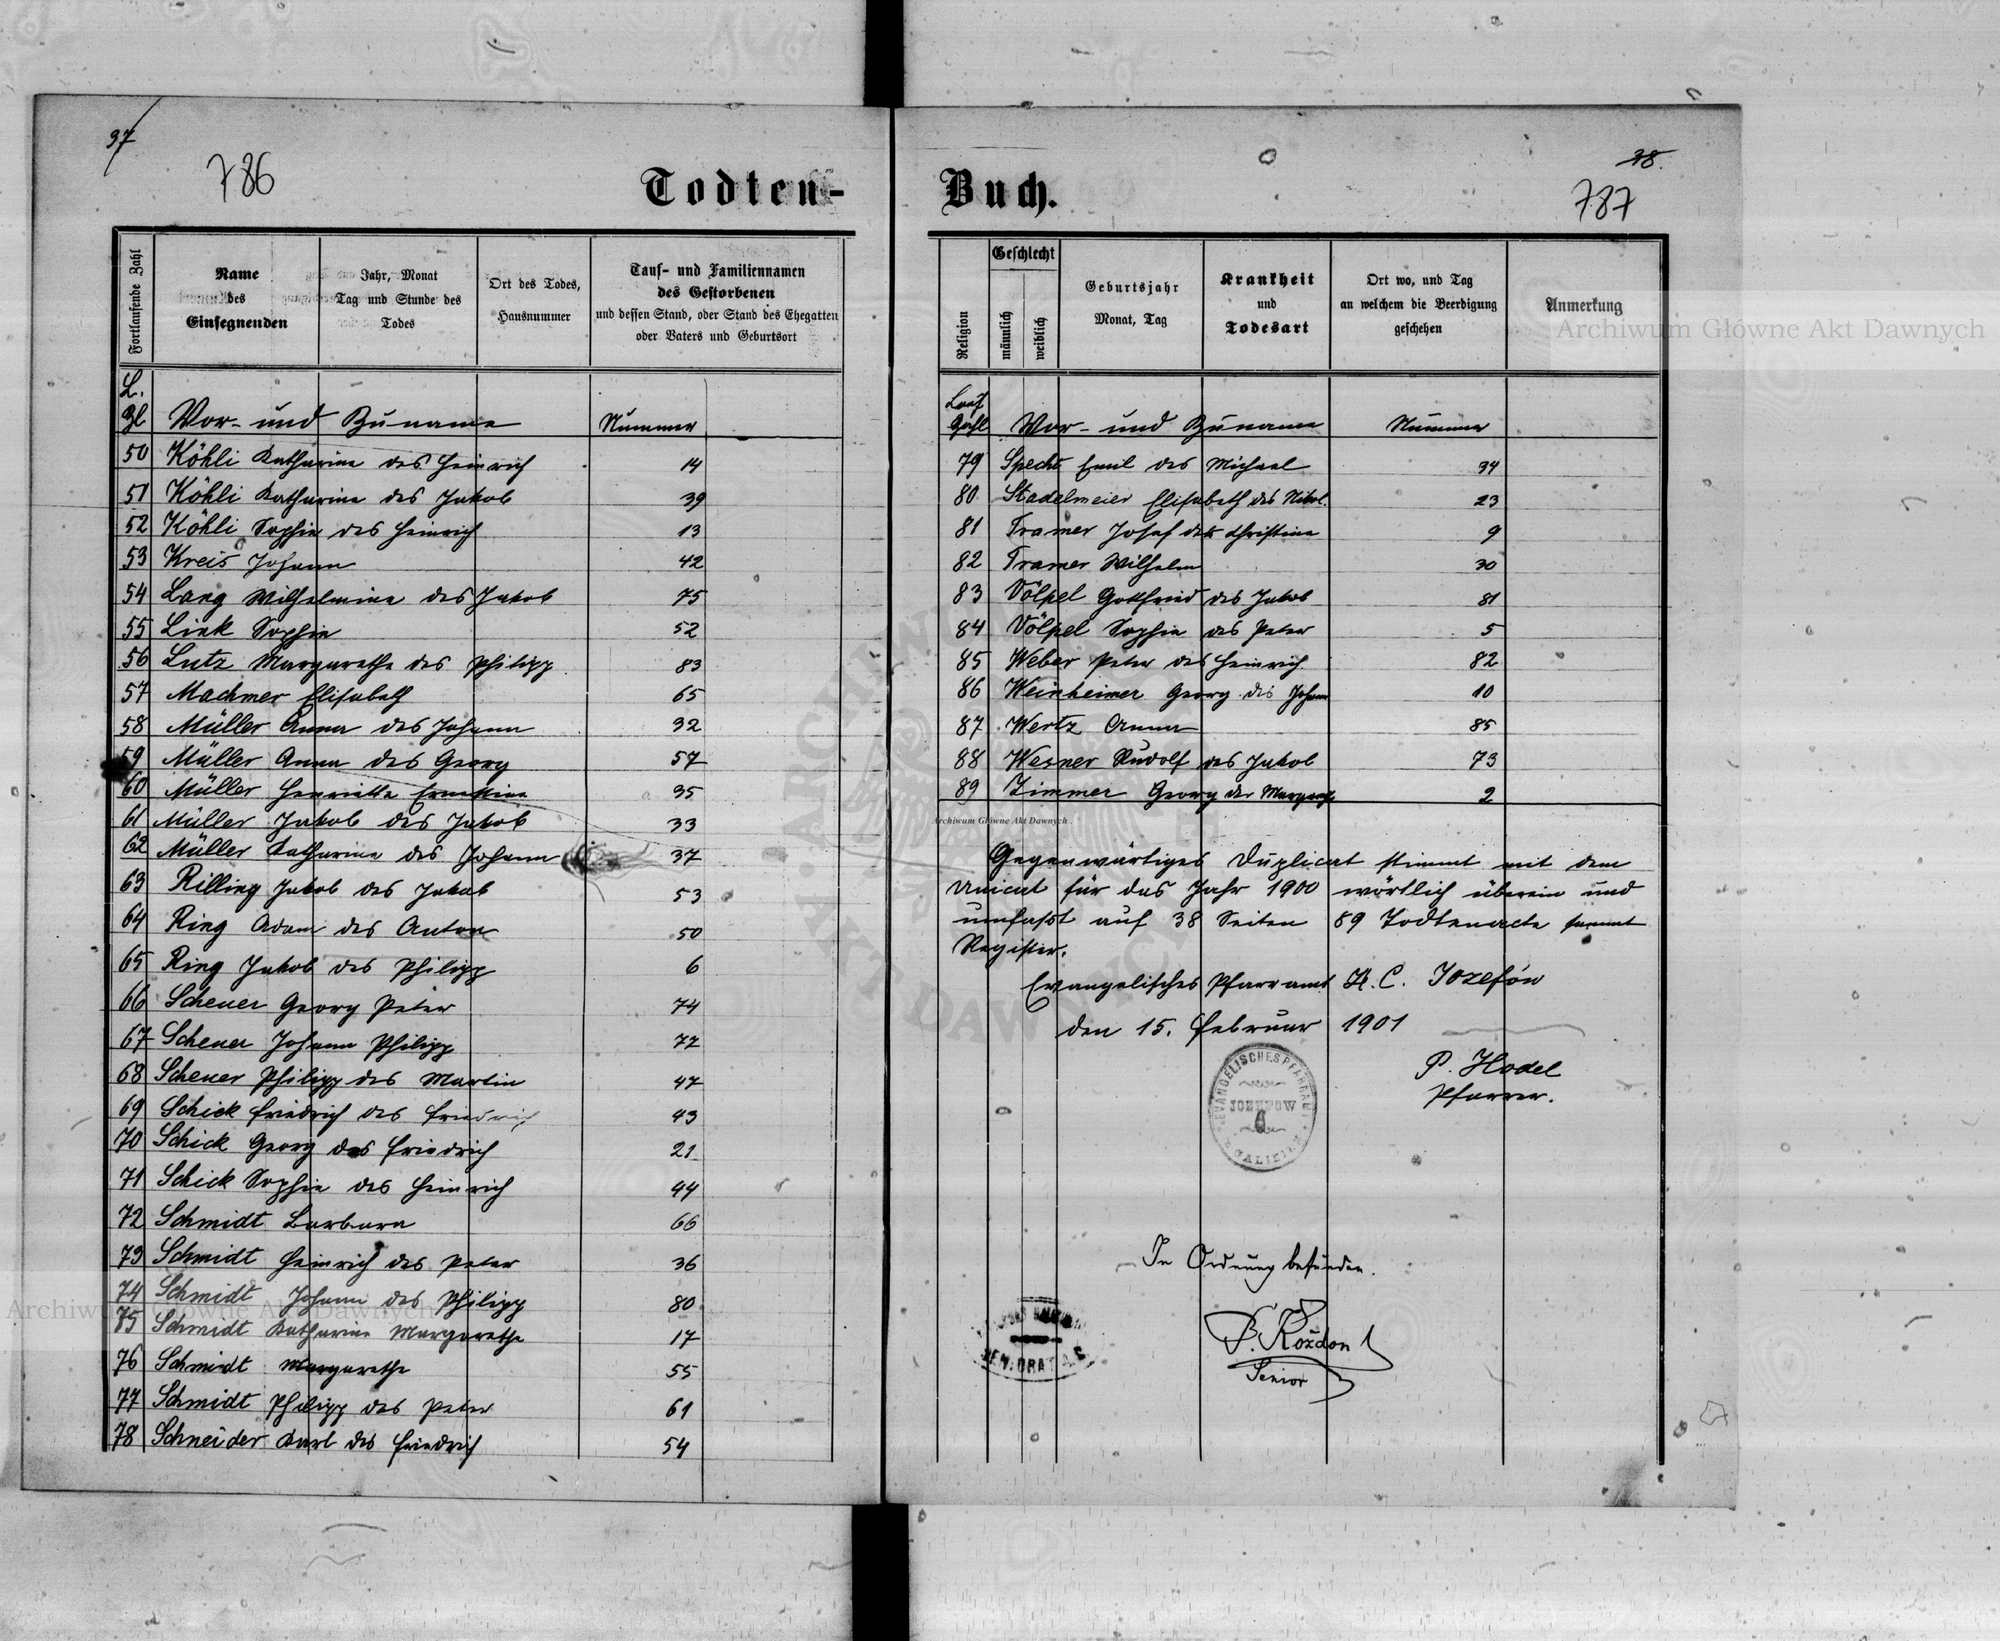 37
786
Todten-
Fortlaufende Zahl
Name
des
Einsegnenden
Jahr, Monat
Tag und Stunde des
Todes
Ort des Todes,
Hausnummer
Tauf- und Familiennamen
des Gestorbenen
und dessen Stand, oder Stand des Ehegatten
oder Vaters und Geburtsort
L.
Zl Vor- und Zuname Nummer
50 Köhli Katharina des Heinrich 14
51 Köhli Katharina des Jakob 39
52 Köhli Sophie des Heinrich 13
53 Kreis Johann 42
54 Lang Wilhelmine des Jakob 75
55 Link Sophie 52
56 Lutz Margarethe des Philipp 83
57 Machmer Elisabeth 65
58 Müller Anna des Johann 32
59 Müller Anna des Georg 57
60 Müller Henriette Ernestine 35
61 Müller Jakob des Jakob 33
62 Müller Katharina des Johann 37
63 Rilling Jakob des Jakob 53
64 Ring Adam des Anton 50
65 Ring Jakob des Philipp 6
66 Scheuer Georg Peter 74
67 Scheuer Johann Philipp 77
68 Scheuer Philipp des Martin 47
69 Schick Friedrich des Friedrich 43
70 Schick Georg des Friedrich 21
71 Schick Sophie des Heinrich 44
72 Schmidt Barbara 66
73 Schmidt Heinrich des Peter 36
74 Schmidt Johann des Philipp 80
75 Schmidt Katharina Margarethe 17
76 Schmidt Margarethe 55
77 Schmidt Philipp des Peter 61
78 Schneider Karl des Friedrich 54
38.
787
Buch.
Religion
Geschlecht
männlich
weiblich
Geburtsjahr
Monat, Tag
Krankheit
und
Todesart
Ort wo, und Tag
an welchem die Beerdigung
geschehen
Anmerkung
Archiwum Główne Akt Dawnych
Lauf
Zahl Vor- und Zuname Nummer
79 Specht Emil des Michael 34
80 Stadelmeier Elisabeth des Nikol. 23
81 Tramer Josef der Christine 9
82 Tramer Wilhelm 30
83 Völpel Gottfried des Jakob 81
84 Völpel Sophie des Peter 5
85 Weber Peter des Heinrich 82
86 Weinheimer Georg des Johann 10
87 Wertz Anna 85
88 Wesner Rudolf des Jakob 73
89 Zimmer Georg der Margareth 2
Archiwum Główne Akt Dawnych
Gegenwärtiges Duplicat stimmt mit dem
Unicat für das Jahr 1900 wörtlich überein und
umfaßt auf 38 Seiten 89 Todtenacte sammt
Register.
Evangelisches Pfarramt H. C. Jozefów
den 15. Februar 1901
P. Hodel
Pfarrer.
EVANGELISCHES PFARRAMT
JOZEFOW
GALIZIEN
In Ordnung befunden.
Senior
Archiwum Główne Akt Dawnych
ARCHIWUM
AKT DAWNYCH